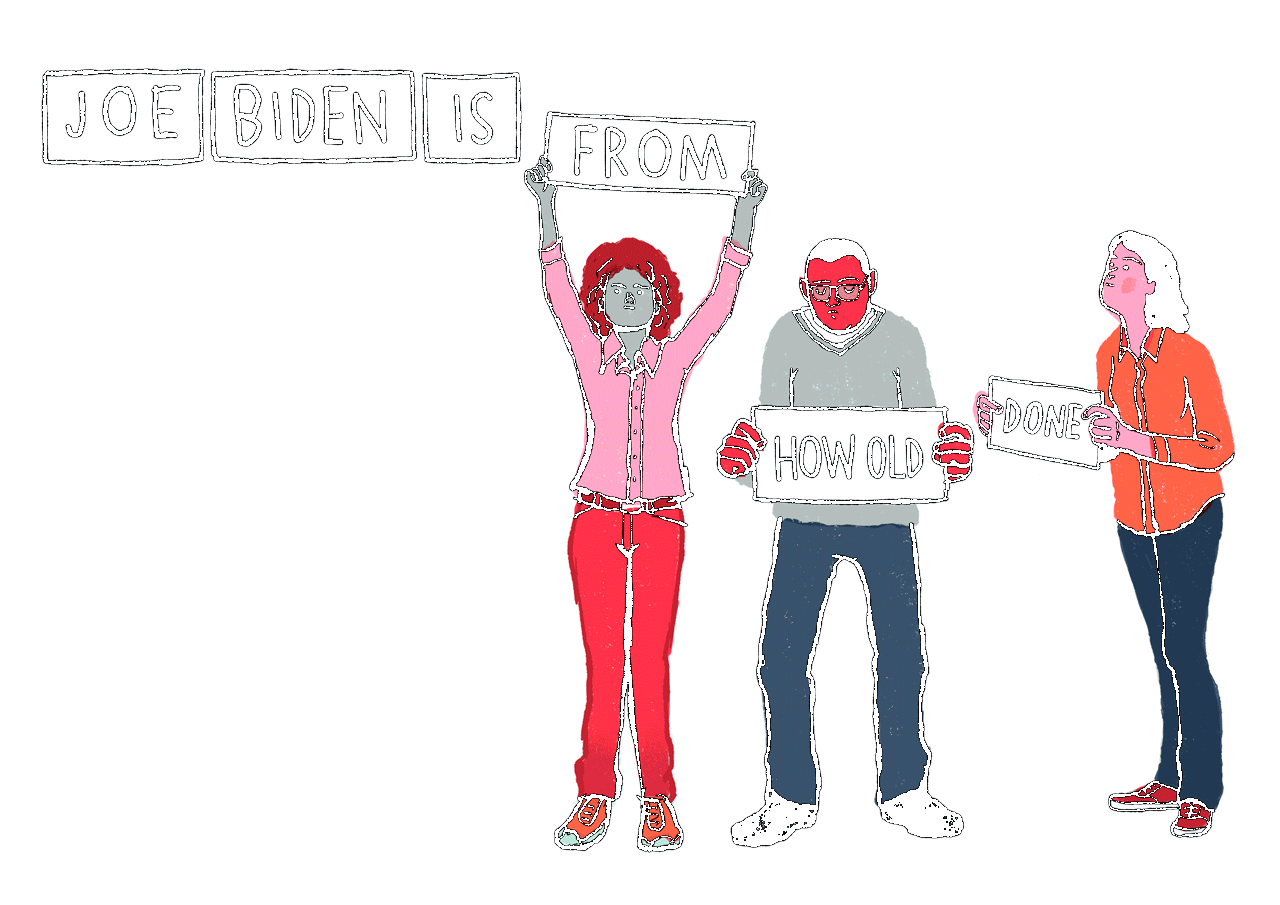 JOE BIDEN IS FROM
HOW OLD
DONE